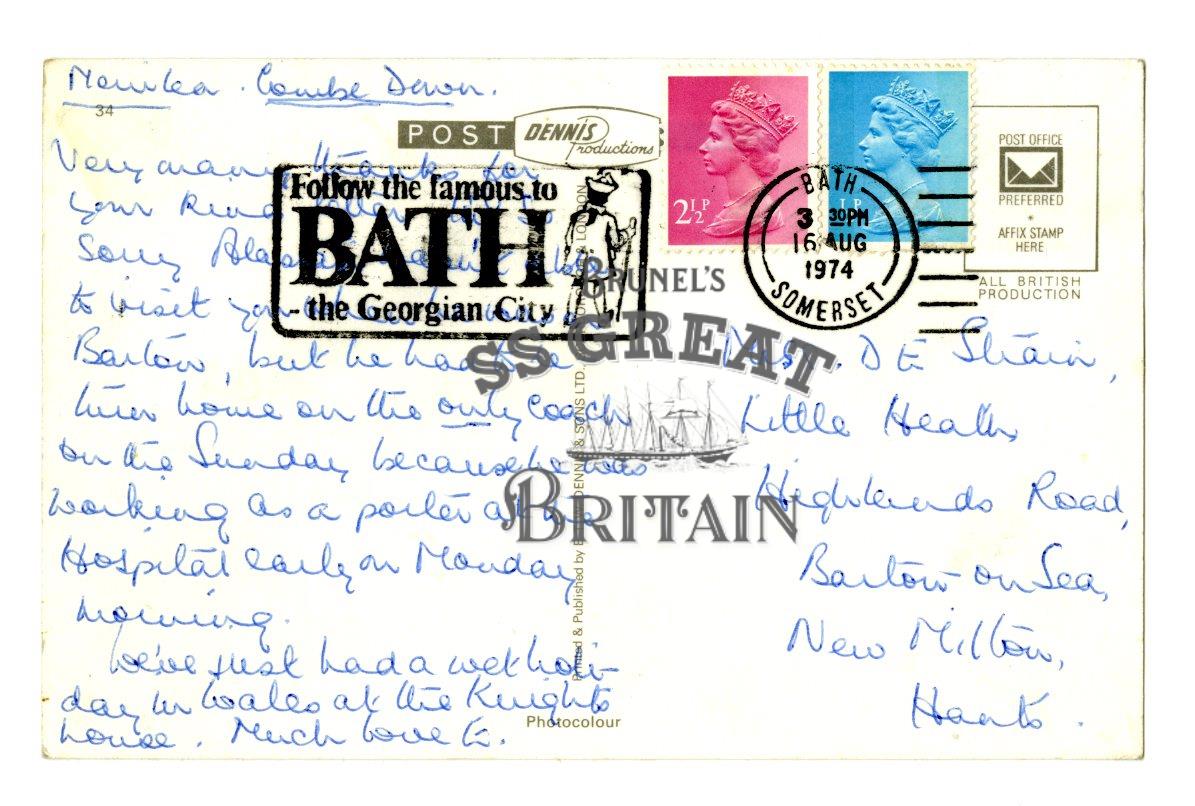 Combe Down.
34
POST
DENNIS
Productions
Very many thanks for
your kind
sorry
to visit you
Barton, but he had to
home on the only coach
on the Sunday because he was
working as a porter at the
Hospital early on Monday
morning.
We've just had a wet holi-
day in Wales at the Knights
house. Much love E.
Follow the famous to
BATH
- the Georgian City
2½P
½P
BATH
3 30PM
16 AUG
1974
SOMERSET
POST OFFICE
PREFERRED
AFFIX STAMP
HERE
ALL BRITISH
PRODUCTION
BRUNEL'S
SS GREAT
BRITAIN
D E Strain,
Little Heath,
Highlands Road,
Barton-on-Sea,
New Milton,
Hants.
Printed & Published by DENNIS & SONS LTD., LONDON
Photocolour